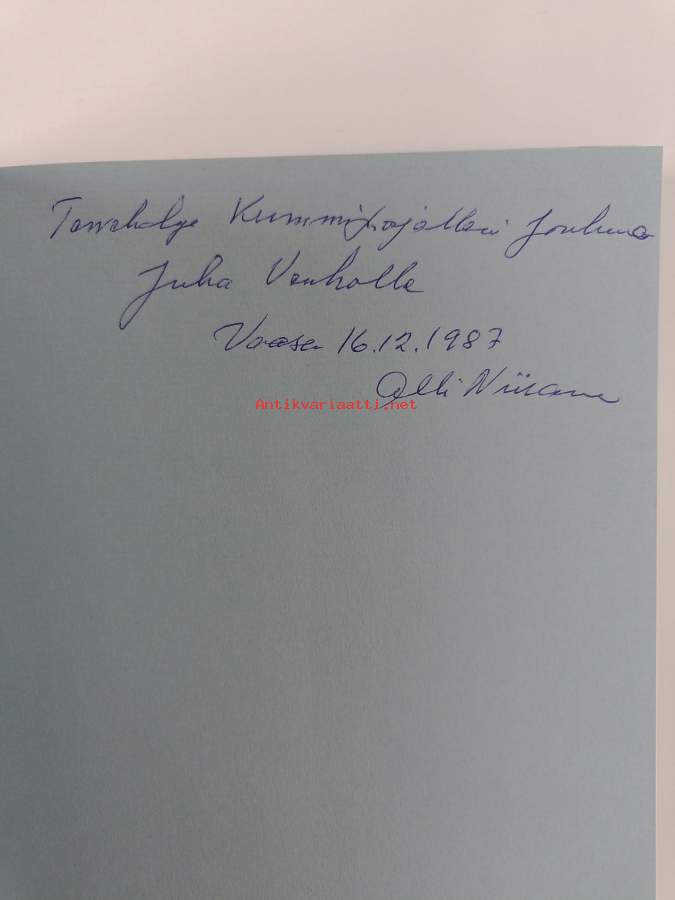 Kummipojalleni Jouluna
Juha Vanhalle
Vaasa 16.12.1987
Olli Niiranen
Antikvariaatti.net